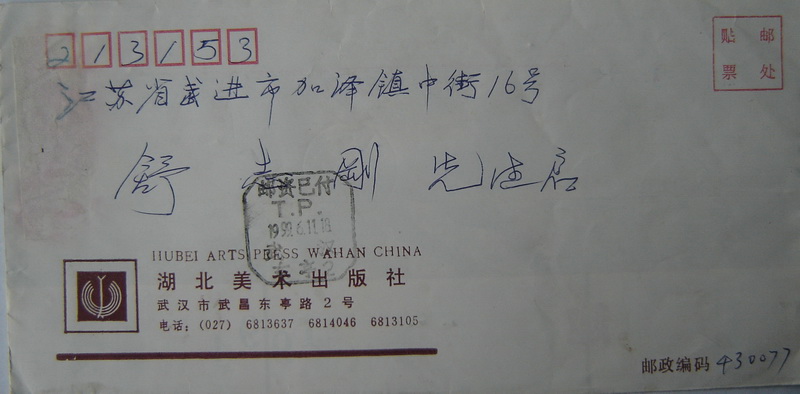 213153
贴 邮
票 处
江苏省武进市加泽镇中街16号
舒 志刚 先生启
邮资已付
T.P.
HUBEI ARTS PRESS WAHAN CHINA
湖北美术出版社
武汉市武昌东亭路2号
电话：(027) 6813637 6814046 6813105
邮政编码 430077